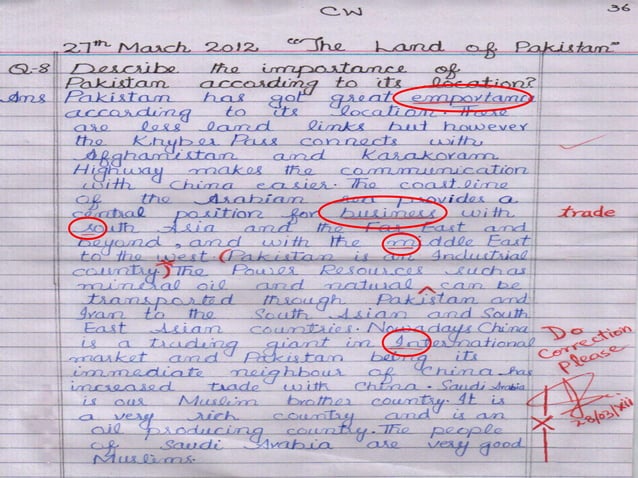 CW
36
27th March 2012 "The Land of Pakistan"
Q-8 Describe the importance of
Pakistan according to its location?
Ans Pakistan has got great emportanc
according to its location. There
are less land links but however
the Khyber Pass connects with
Afghanistan and Karakoram
Highway makes the communication
with China easier. The coastline
of the Arabian sea provides a
central position for business with trade
south Asia and the Far East and
beyond, and with the middle East
to the west (Pakistan is an Industrial
country.) The Power Resources such as
mineral oil and natural ^ can be
transported through Pakistan and
Iran to the South Asian and South
East Asian countries. Nowadays China
is a trading giant in International
market and Pakistan being its
immediate neighbour of China has
increased trade with China. Saudi Arabia
is our Muslim brother country. It is
a very rich country and is an
oil producing country. The people
of Saudi Arabia are very good
Muslims.
Do
Correction
Please
28/03/XII